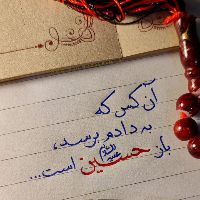 آن کس که
به دادم برسد،
باز حسین علیه‌السلام است...